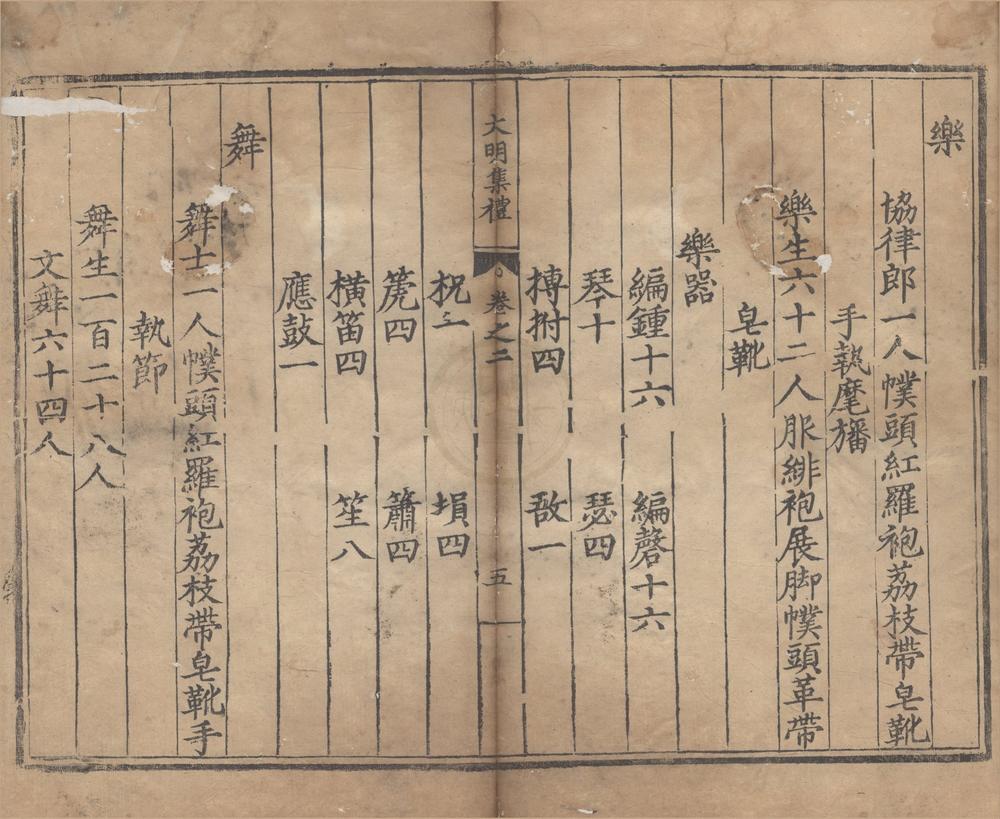 樂
協律郎一人幞頭紅羅袍荔枝帶皂靴
手執麾旛
樂生六十二人服緋袍展脚幞頭革帶
皂靴
樂器
編鍾十六 編磬十六
琴十 瑟四
搏拊四 敔一
大明集禮 卷之二 五
柷一 塤四
篪四 簫四
橫笛四 笙八
應鼓一
舞
舞士一人幞頭紅羅袍荔枝帶皂靴手
執節
舞生一百二十八人
文舞六十四人